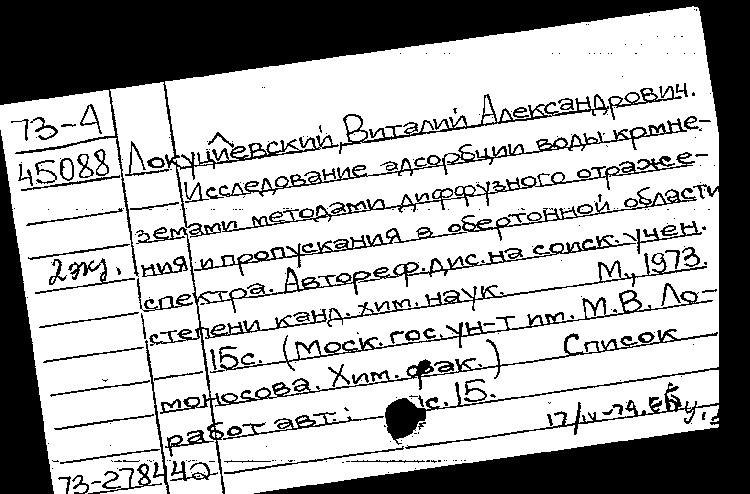 73-4
45088 Локуциевский, Виталий Александрович.
Исследование адсорбции воды кремне-
2 экз. земами методами диффузного отраже-
ния и пропускания в обертонной области
спектра. Автореф. дис. на соиск. учен.
степени канд. хим. наук. М., 1973.
15с. (Моск. гос. ун-т им. М.В. Ло-
моносова. Хим. фак.) Список
работ авт.: с. 15.
17/IV-74.
73-27844